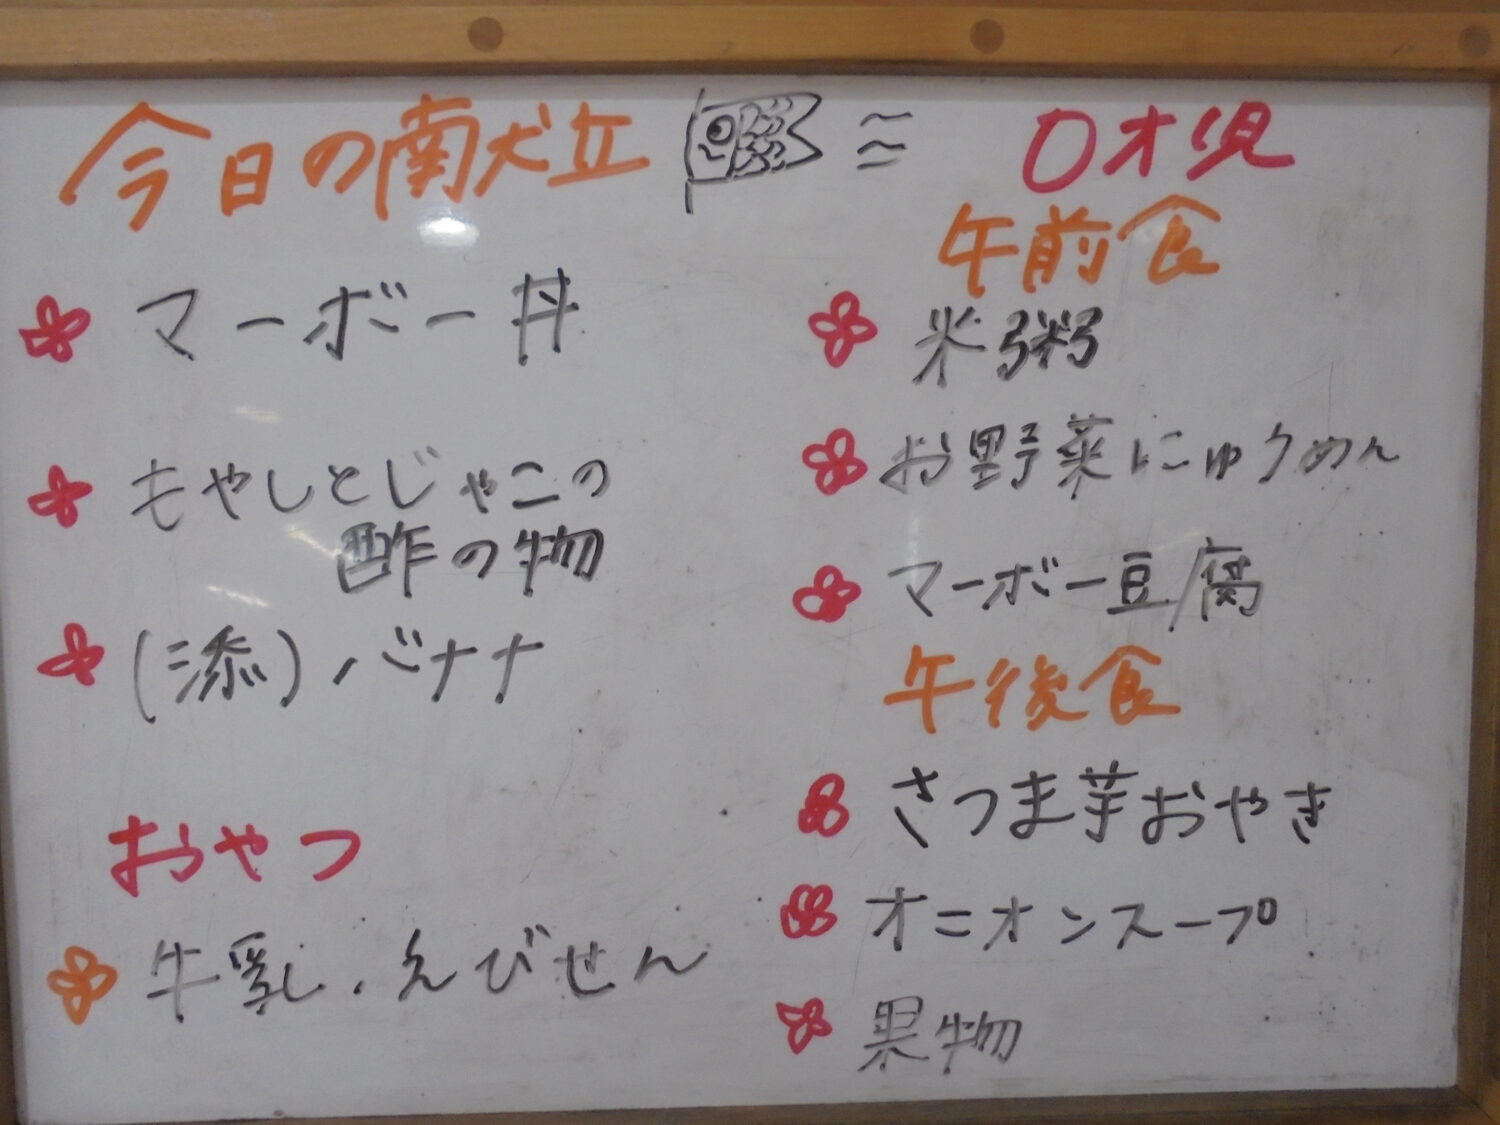 今日の献立
マーボー丼
もやしとじゃこの
酢の物
(添)バナナ
おやつ
牛乳.えびせん
0才児
午前食
米粥
お野菜にゅうめん
マーボー豆腐
午後食
さつま芋おやき
オニオンスープ
果物